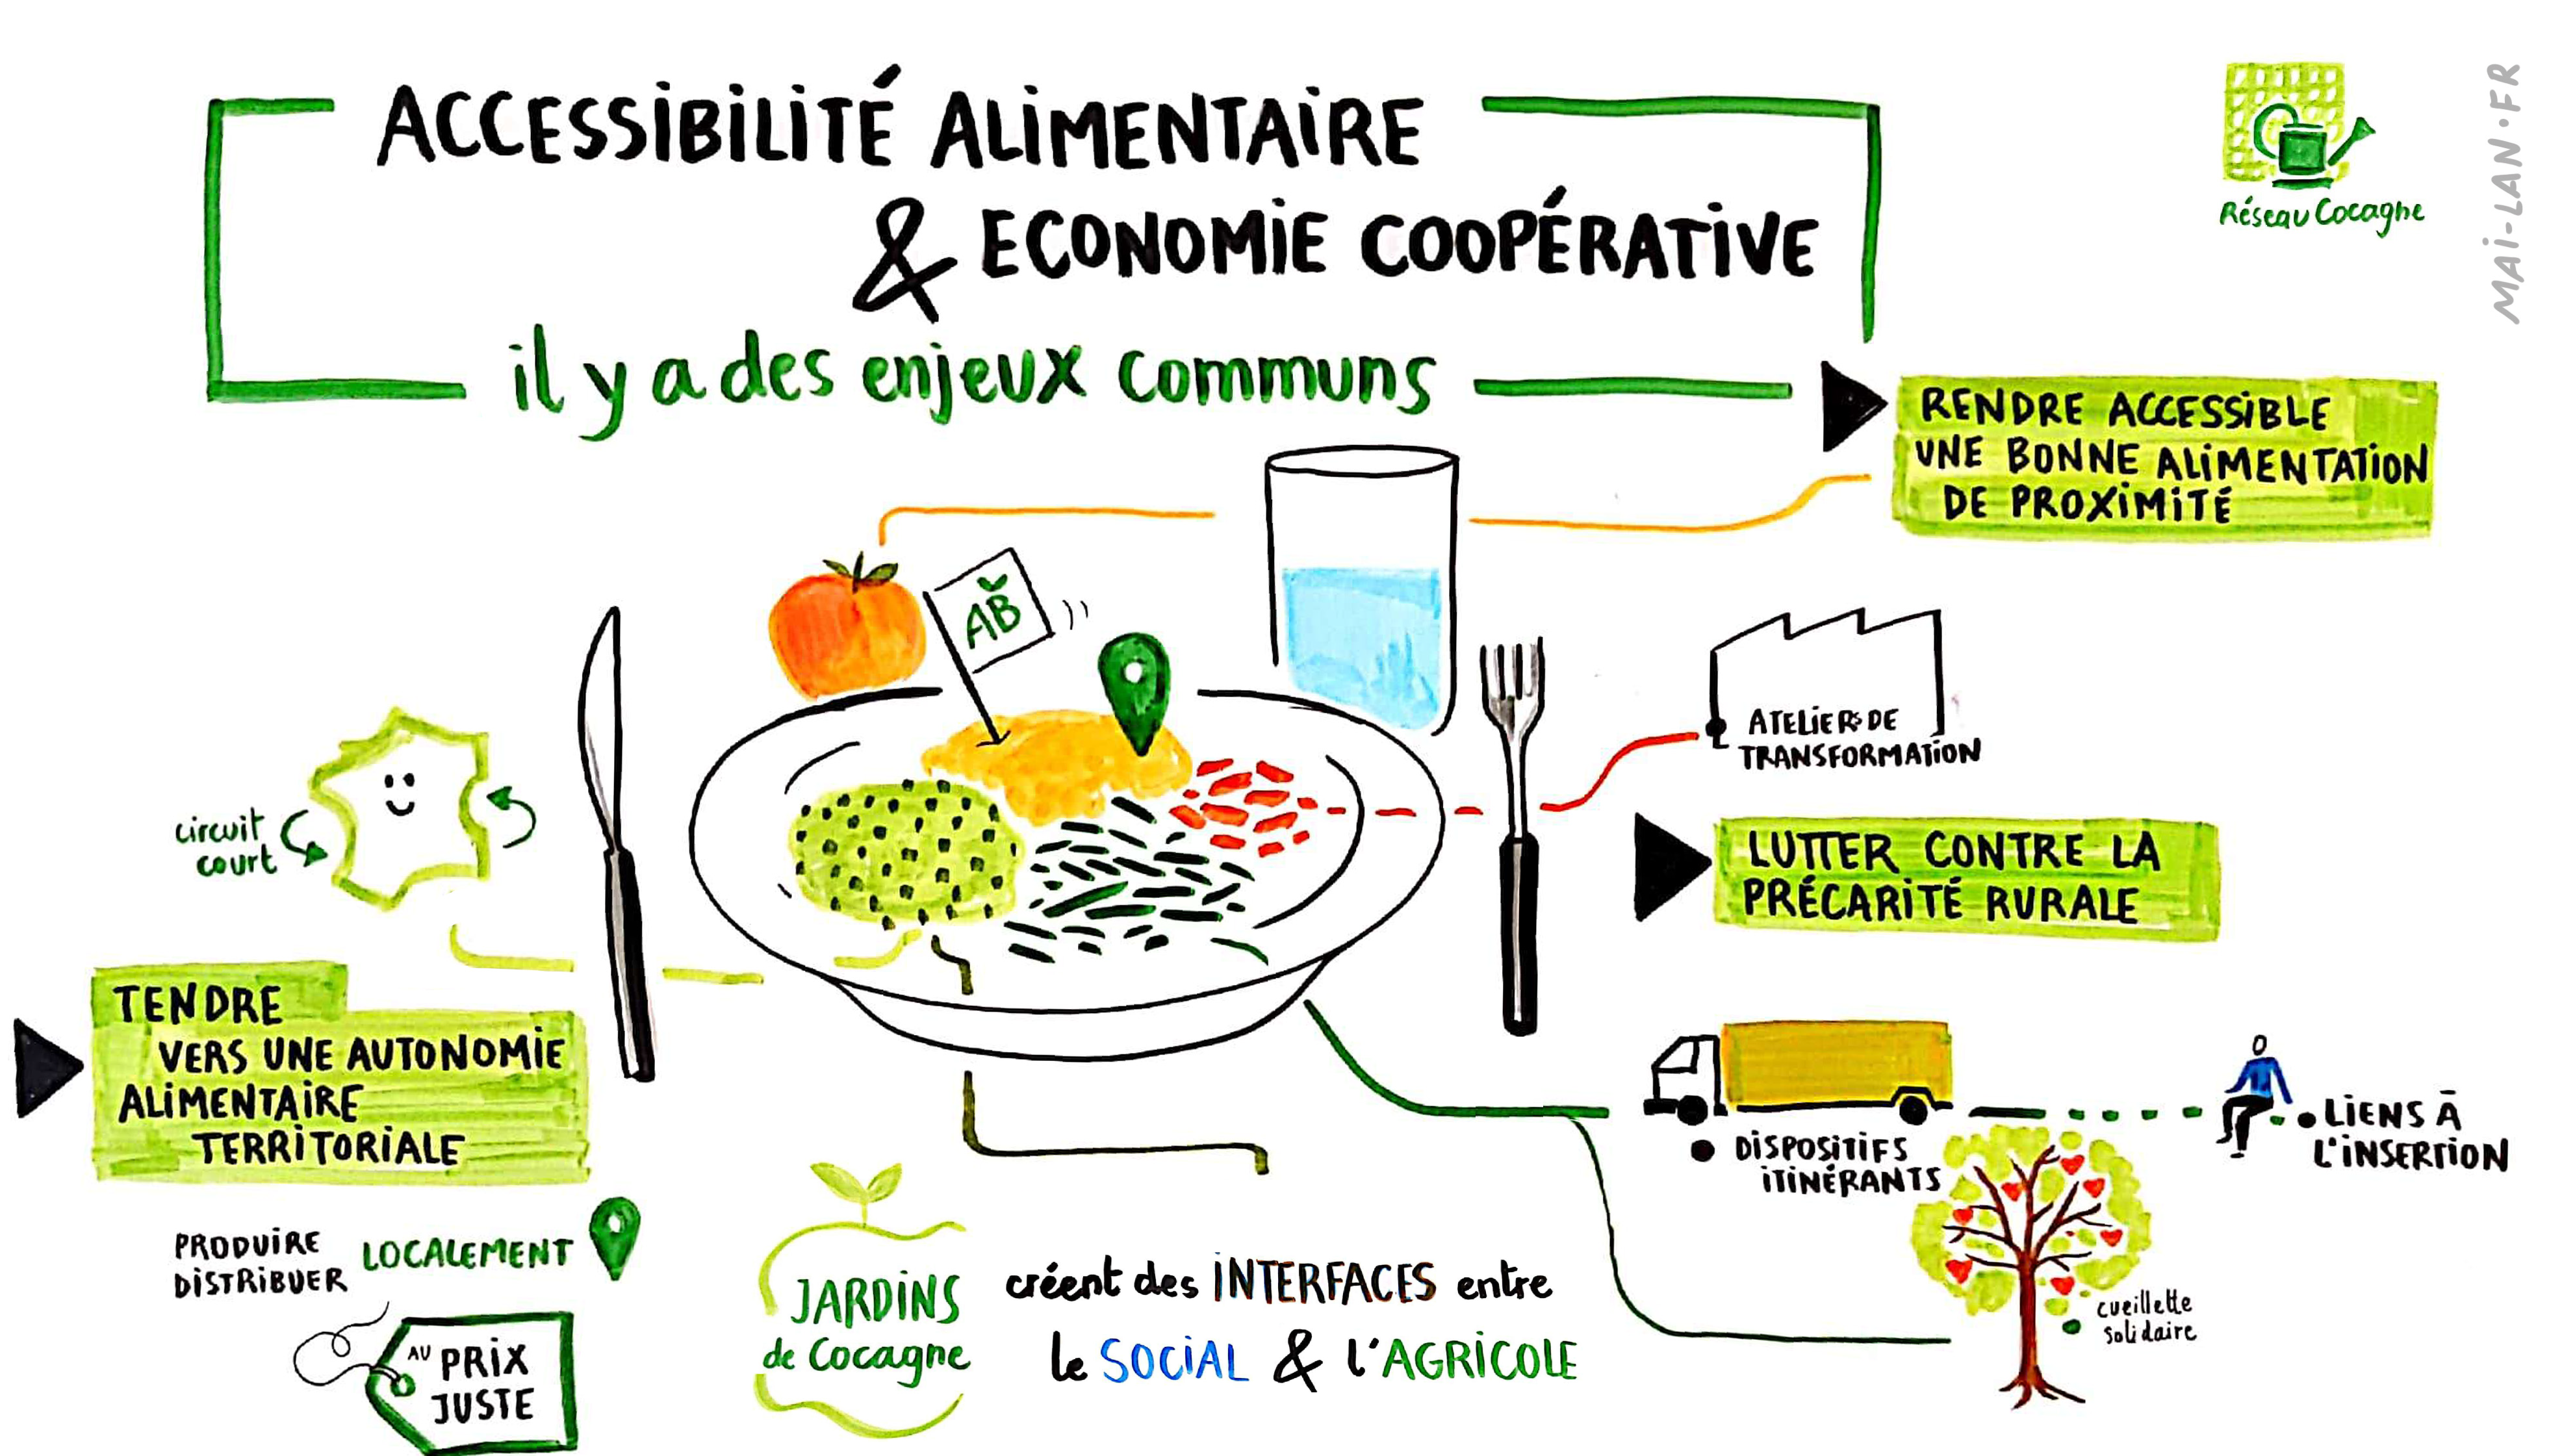 ACCESSIBILITÉ ALIMENTAIRE
& ECONOMIE COOPÉRATIVE
il y a des enjeux communs
Réseau Cocagne
MAI-LAN.FR
RENDRE ACCESSIBLE
UNE BONNE ALIMENTATION
DE PROXIMITÉ
AB
ATELIERS DE
TRANSFORMATION
circuit
court
LUTTER CONTRE LA
PRÉCARITÉ RURALE
TENDRE
VERS UNE AUTONOMIE
ALIMENTAIRE
TERRITORIALE
DISPOSITIFS
ITINÉRANTS
LIENS À
L'INSERTION
PRODUIRE
DISTRIBUER
LOCALEMENT
AU PRIX
JUSTE
JARDINS
de Cocagne
créent des INTERFACES entre
le SOCIAL & l'AGRICOLE
cueillette
solidaire